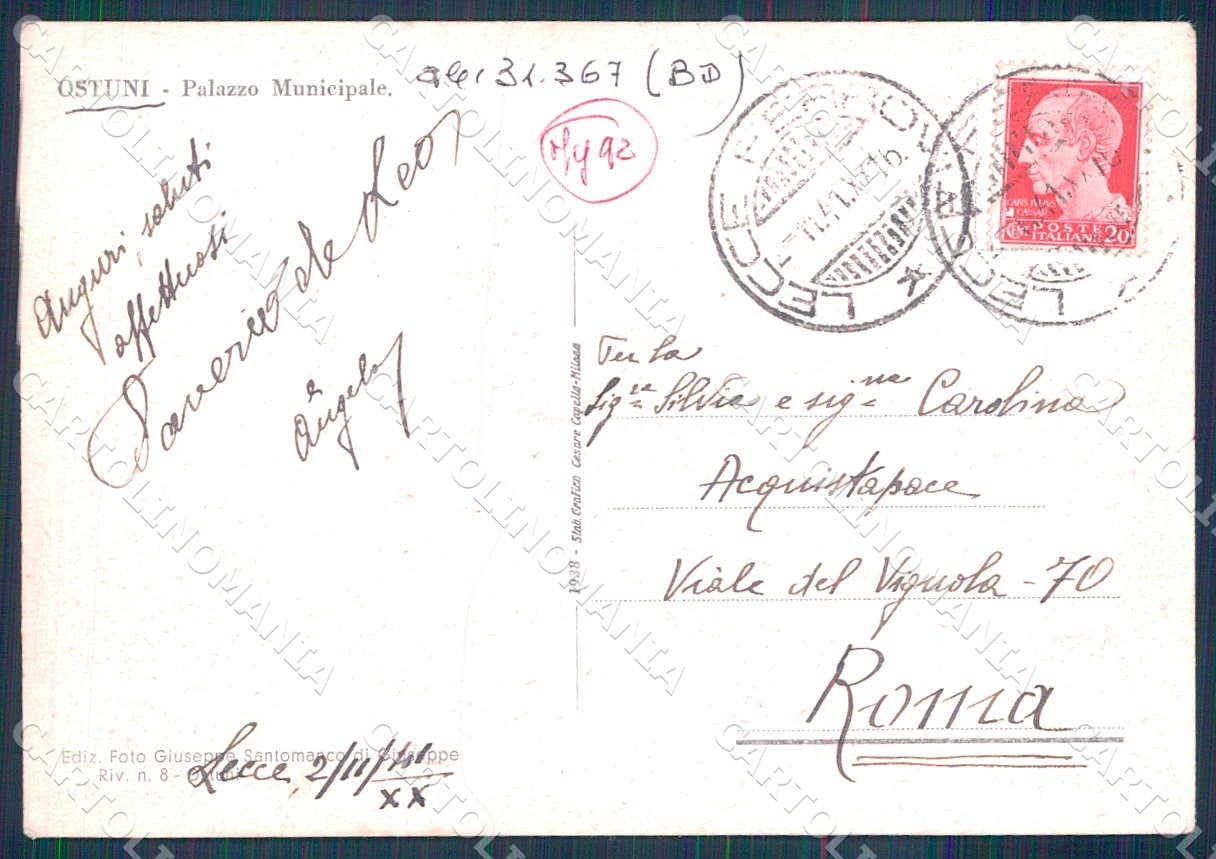 OSTUNI - Palazzo Municipale.
31.367 (BD)
Auguri, saluti
affettuosi
Saverio de Leo
e
Angela
LECCE FERROV
LECCE
CAIVS IVLIVS
CAESAR
CENT. POSTE ITALIANE 20
Per la
Sig.na Silvia e sig.na Carolina
Acquistapace
Viale del Vignola - 70
Roma
1938 - Stab. Grafico Cesare Capello-Milano
Ediz. Foto Giuseppe Santomanco di Giuseppe
Riv. n. 8 - Ostuni
Lecce, 2/11/41
XX
CARTOLINOMANIA